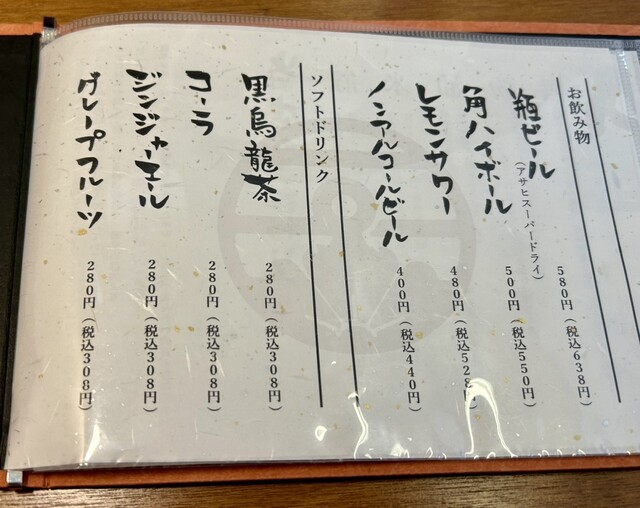 お飲み物
瓶ビール
(アサヒスーパードライ)
580円(税込638円)
角ハイボール
500円(税込550円)
レモンサワー
480円(税込528円)
ノンアルコールビール
400円(税込440円)
ソフトドリンク
黒烏龍茶
280円(税込308円)
コーラ
280円(税込308円)
ジンジャーエール
280円(税込308円)
グレープフルーツ
280円(税込308円)